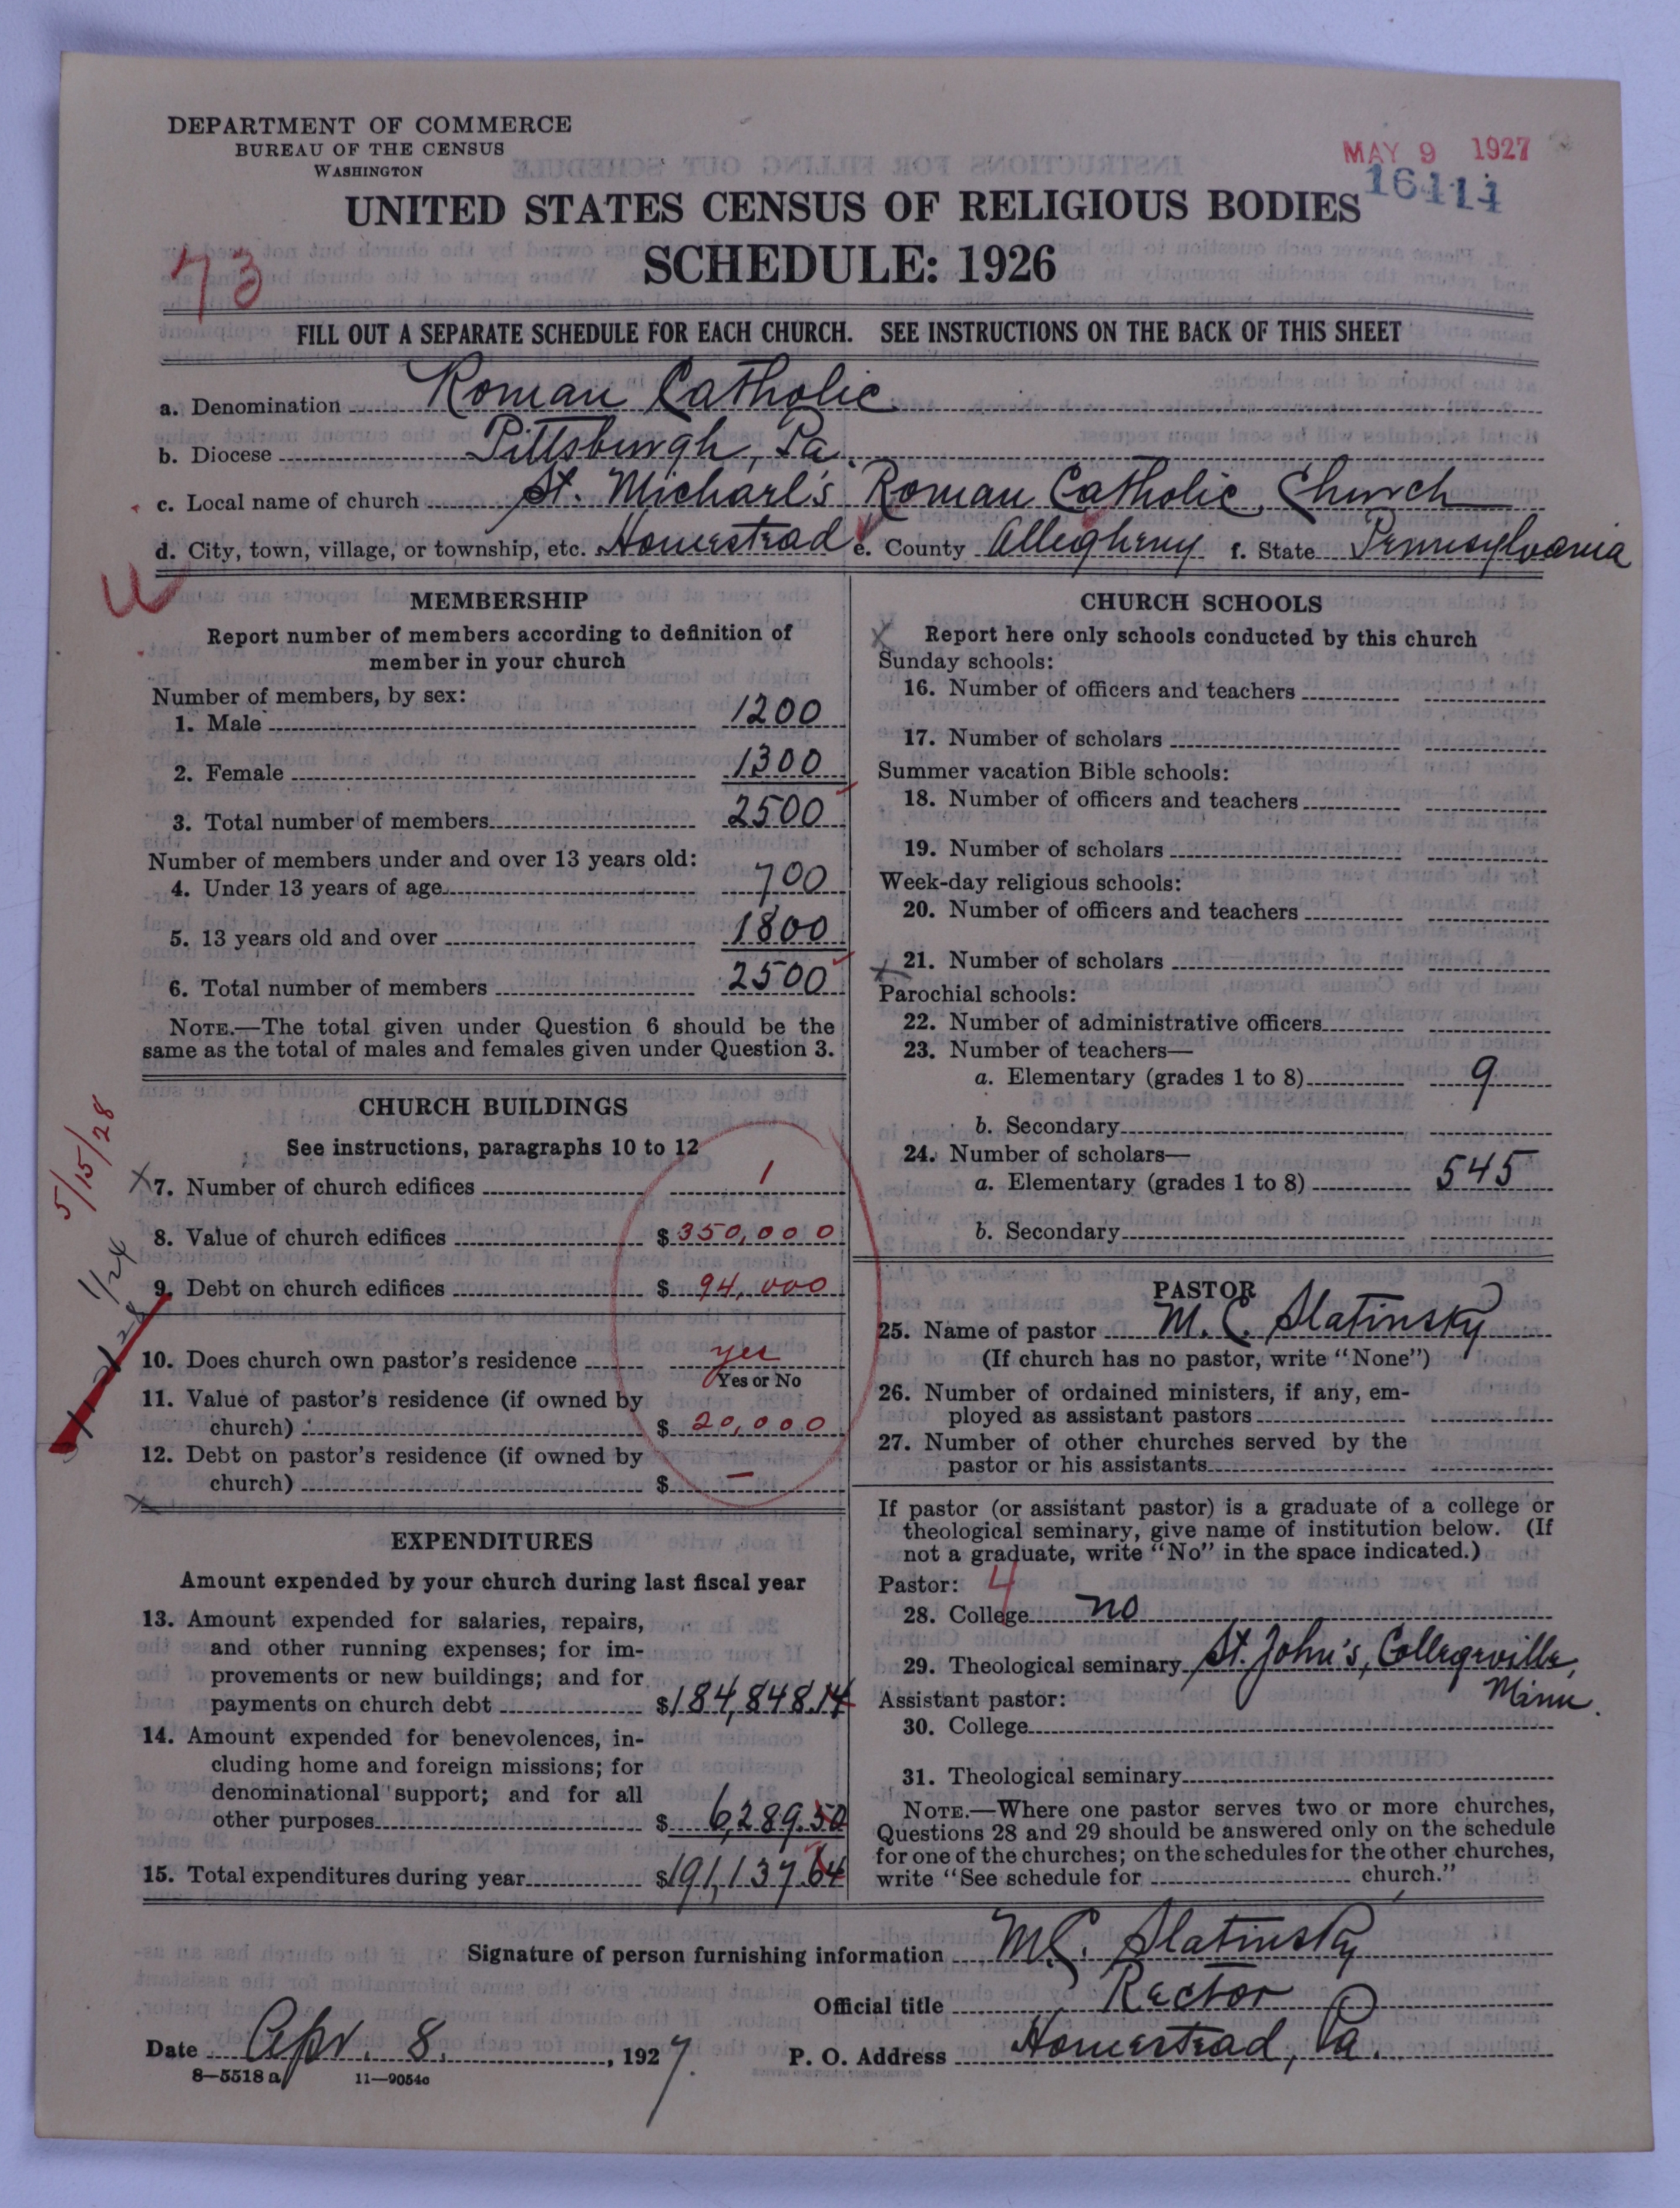 DEPARTMENT OF COMMERCE
BUREAU OF THE CENSUS
WASHINGTON
MAY 9 1927
16414
UNITED STATES CENSUS OF RELIGIOUS BODIES
SCHEDULE: 1926
73
FILL OUT A SEPARATE SCHEDULE FOR EACH CHURCH. SEE INSTRUCTIONS ON THE BACK OF THIS SHEET
a. Denomination Roman Catholic
b. Diocese Pittsburgh, Pa.
c. Local name of church St. Michael's Roman Catholic Church
d. City, town, village, or township, etc. Homestead e. County Allegheny f. State Pennsylvania
MEMBERSHIP
Report number of members according to definition of
member in your church
Number of members, by sex:
1. Male 1200
2. Female 1300
3. Total number of members 2500
Number of members under and over 13 years old:
4. Under 13 years of age 700
5. 13 years old and over 1800
6. Total number of members 2500
NOTE.—The total given under Question 6 should be the
same as the total of males and females given under Question 3.
CHURCH BUILDINGS
See instructions, paragraphs 10 to 12
5/15/28
X 7. Number of church edifices 1
8. Value of church edifices $350,000
1/24
9. Debt on church edifices $94,000
10. Does church own pastor's residence yes
Yes or No
11. Value of pastor's residence (if owned by
church) $20,000
12. Debt on pastor's residence (if owned by
church) $ —
X
EXPENDITURES
Amount expended by your church during last fiscal year
13. Amount expended for salaries, repairs,
and other running expenses; for im-
provements or new buildings; and for
payments on church debt $184,848.14
14. Amount expended for benevolences, in-
cluding home and foreign missions; for
denominational support; and for all
other purposes $6,289.50
15. Total expenditures during year $191,137.64
CHURCH SCHOOLS
X Report here only schools conducted by this church
Sunday schools:
16. Number of officers and teachers
17. Number of scholars
Summer vacation Bible schools:
18. Number of officers and teachers
19. Number of scholars
Week-day religious schools:
20. Number of officers and teachers
X 21. Number of scholars
Parochial schools:
22. Number of administrative officers
23. Number of teachers—
a. Elementary (grades 1 to 8) 9
b. Secondary
24. Number of scholars—
a. Elementary (grades 1 to 8) 545
b. Secondary
PASTOR
25. Name of pastor M. C. Slatinsky
(If church has no pastor, write "None")
26. Number of ordained ministers, if any, em-
ployed as assistant pastors
27. Number of other churches served by the
pastor or his assistants
If pastor (or assistant pastor) is a graduate of a college or
theological seminary, give name of institution below. (If
not a graduate, write "No" in the space indicated.)
Pastor: 4
28. College no
29. Theological seminary St. John's, Collegeville,
Minn.
Assistant pastor:
30. College
31. Theological seminary
NOTE.—Where one pastor serves two or more churches,
Questions 28 and 29 should be answered only on the schedule
for one of the churches; on the schedules for the other churches,
write "See schedule for church."
Signature of person furnishing information M.C. Slatinsky
Official title Rector
Date Apr. 8, 1927. P. O. Address Homestead, Pa.
8—5518 a 11—9054c